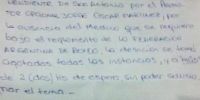 PENDIENTE DE SAN ANTONIO POR EL
JORGE OSCAR MARTINEZ, POR
LA AUSENCIA DEL MEDICO QUE SE REQUIERE
BAJO EL REGLAMENTO DE LA FEDERACION
ARGENTINA DE BOXEO, LA DECISION SE TOMA
AGOTADOS TODAS LAS INSTANCIAS, Y A
DE 2 (DOS) HS DE ESPERA SIN PODER
POR EL TEMA.-